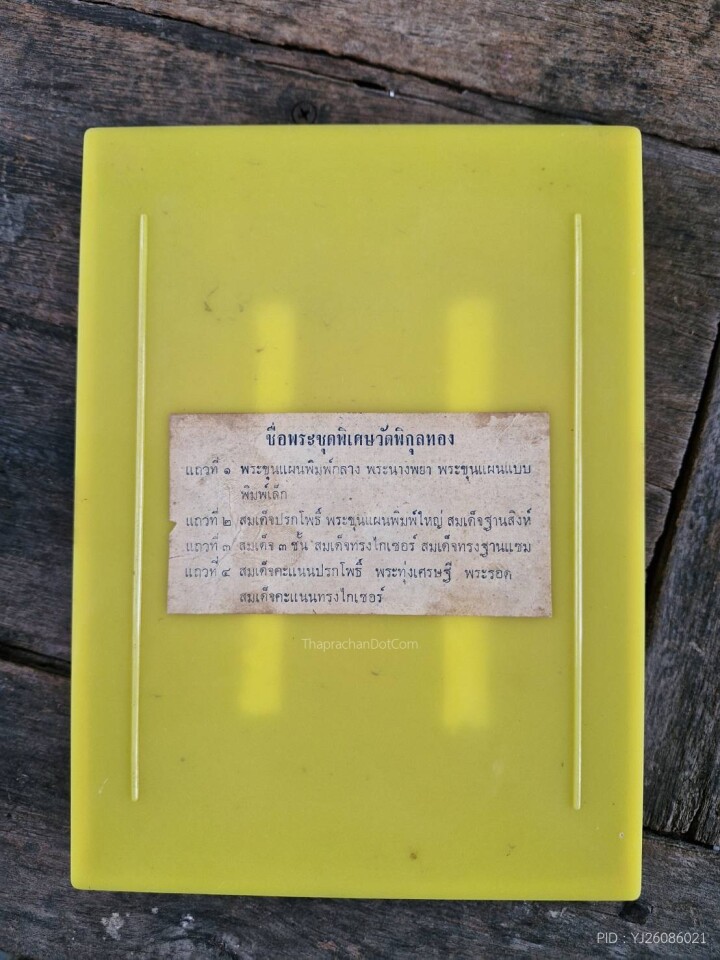 ชื่อพระชุดพิเศษวัดพิกุลทอง
แถวที่ ๑ พระขุนแผนพิมพ์กลาง พระนางพยา พระขุนแผนแบบ
พิมพ์เล็ก
แถวที่ ๒ สมเด็จปรกโพธิ์ พระขุนแผนพิมพ์ใหญ่ สมเด็จฐานสิงห์
แถวที่ ๓ สมเด็จ ๓ ชั้น สมเด็จทรงไกเซอร์ สมเด็จทรงฐานแซม
แถวที่ ๔ สมเด็จคะแนนปรกโพธิ์ พระทุ่งเศรษฐี พระรอด
สมเด็จคะแนนทรงไกเซอร์
ThaprachanDotCom
PID : YJ26086021